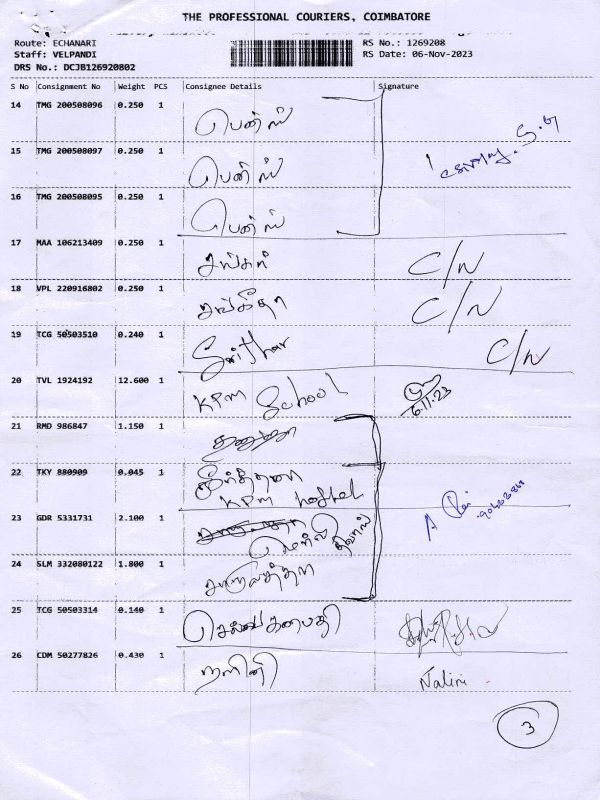 THE PROFESSIONAL COURIERS, COIMBATORE
Route: ECHANARI
RS No.: 1269208
Staff: VELPANDI
RS Date: 06-Nov-2023
DRS No.: DCJB126920802
S No Consignment No Weight PCS Consignee Details Signature
14 TMG 200508096 0.250 1 பென்ஸ்
15 TMG 200508097 0.250 1 பென்ஸ்
16 TMG 200508095 0.250 1 பென்ஸ்
17 MAA 106213409 0.250 1 சங்கர் C/N
18 VPL 220916802 0.250 1 சங்கீதா C/N
19 TCG 50503510 0.240 1 Srithar C/N
20 TVL 1924192 12.600 1 KPM School 6.11.23
21 RMD 986847 1.150 1
22 TKY 880909 0.045 1 கீர்த்தனா
KPM hostel
23 GDR 5331731 2.100 1
24 SLM 332080122 1.800 1
25 TCG 50503314 0.140 1 செல்வகணபதி
26 CDM 50277826 0.430 1 நளினி Nalini
3